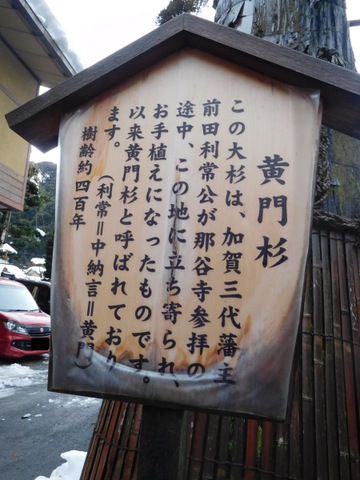 黄門杉
この大杉は、加賀三代藩主
前田利常公が那谷寺参拝の
途中、この地に立ち寄られ、
お手植えになったものです。
以来黄門杉と呼ばれており
ます。（利常＝中納言＝黄門）
樹齢約四百年